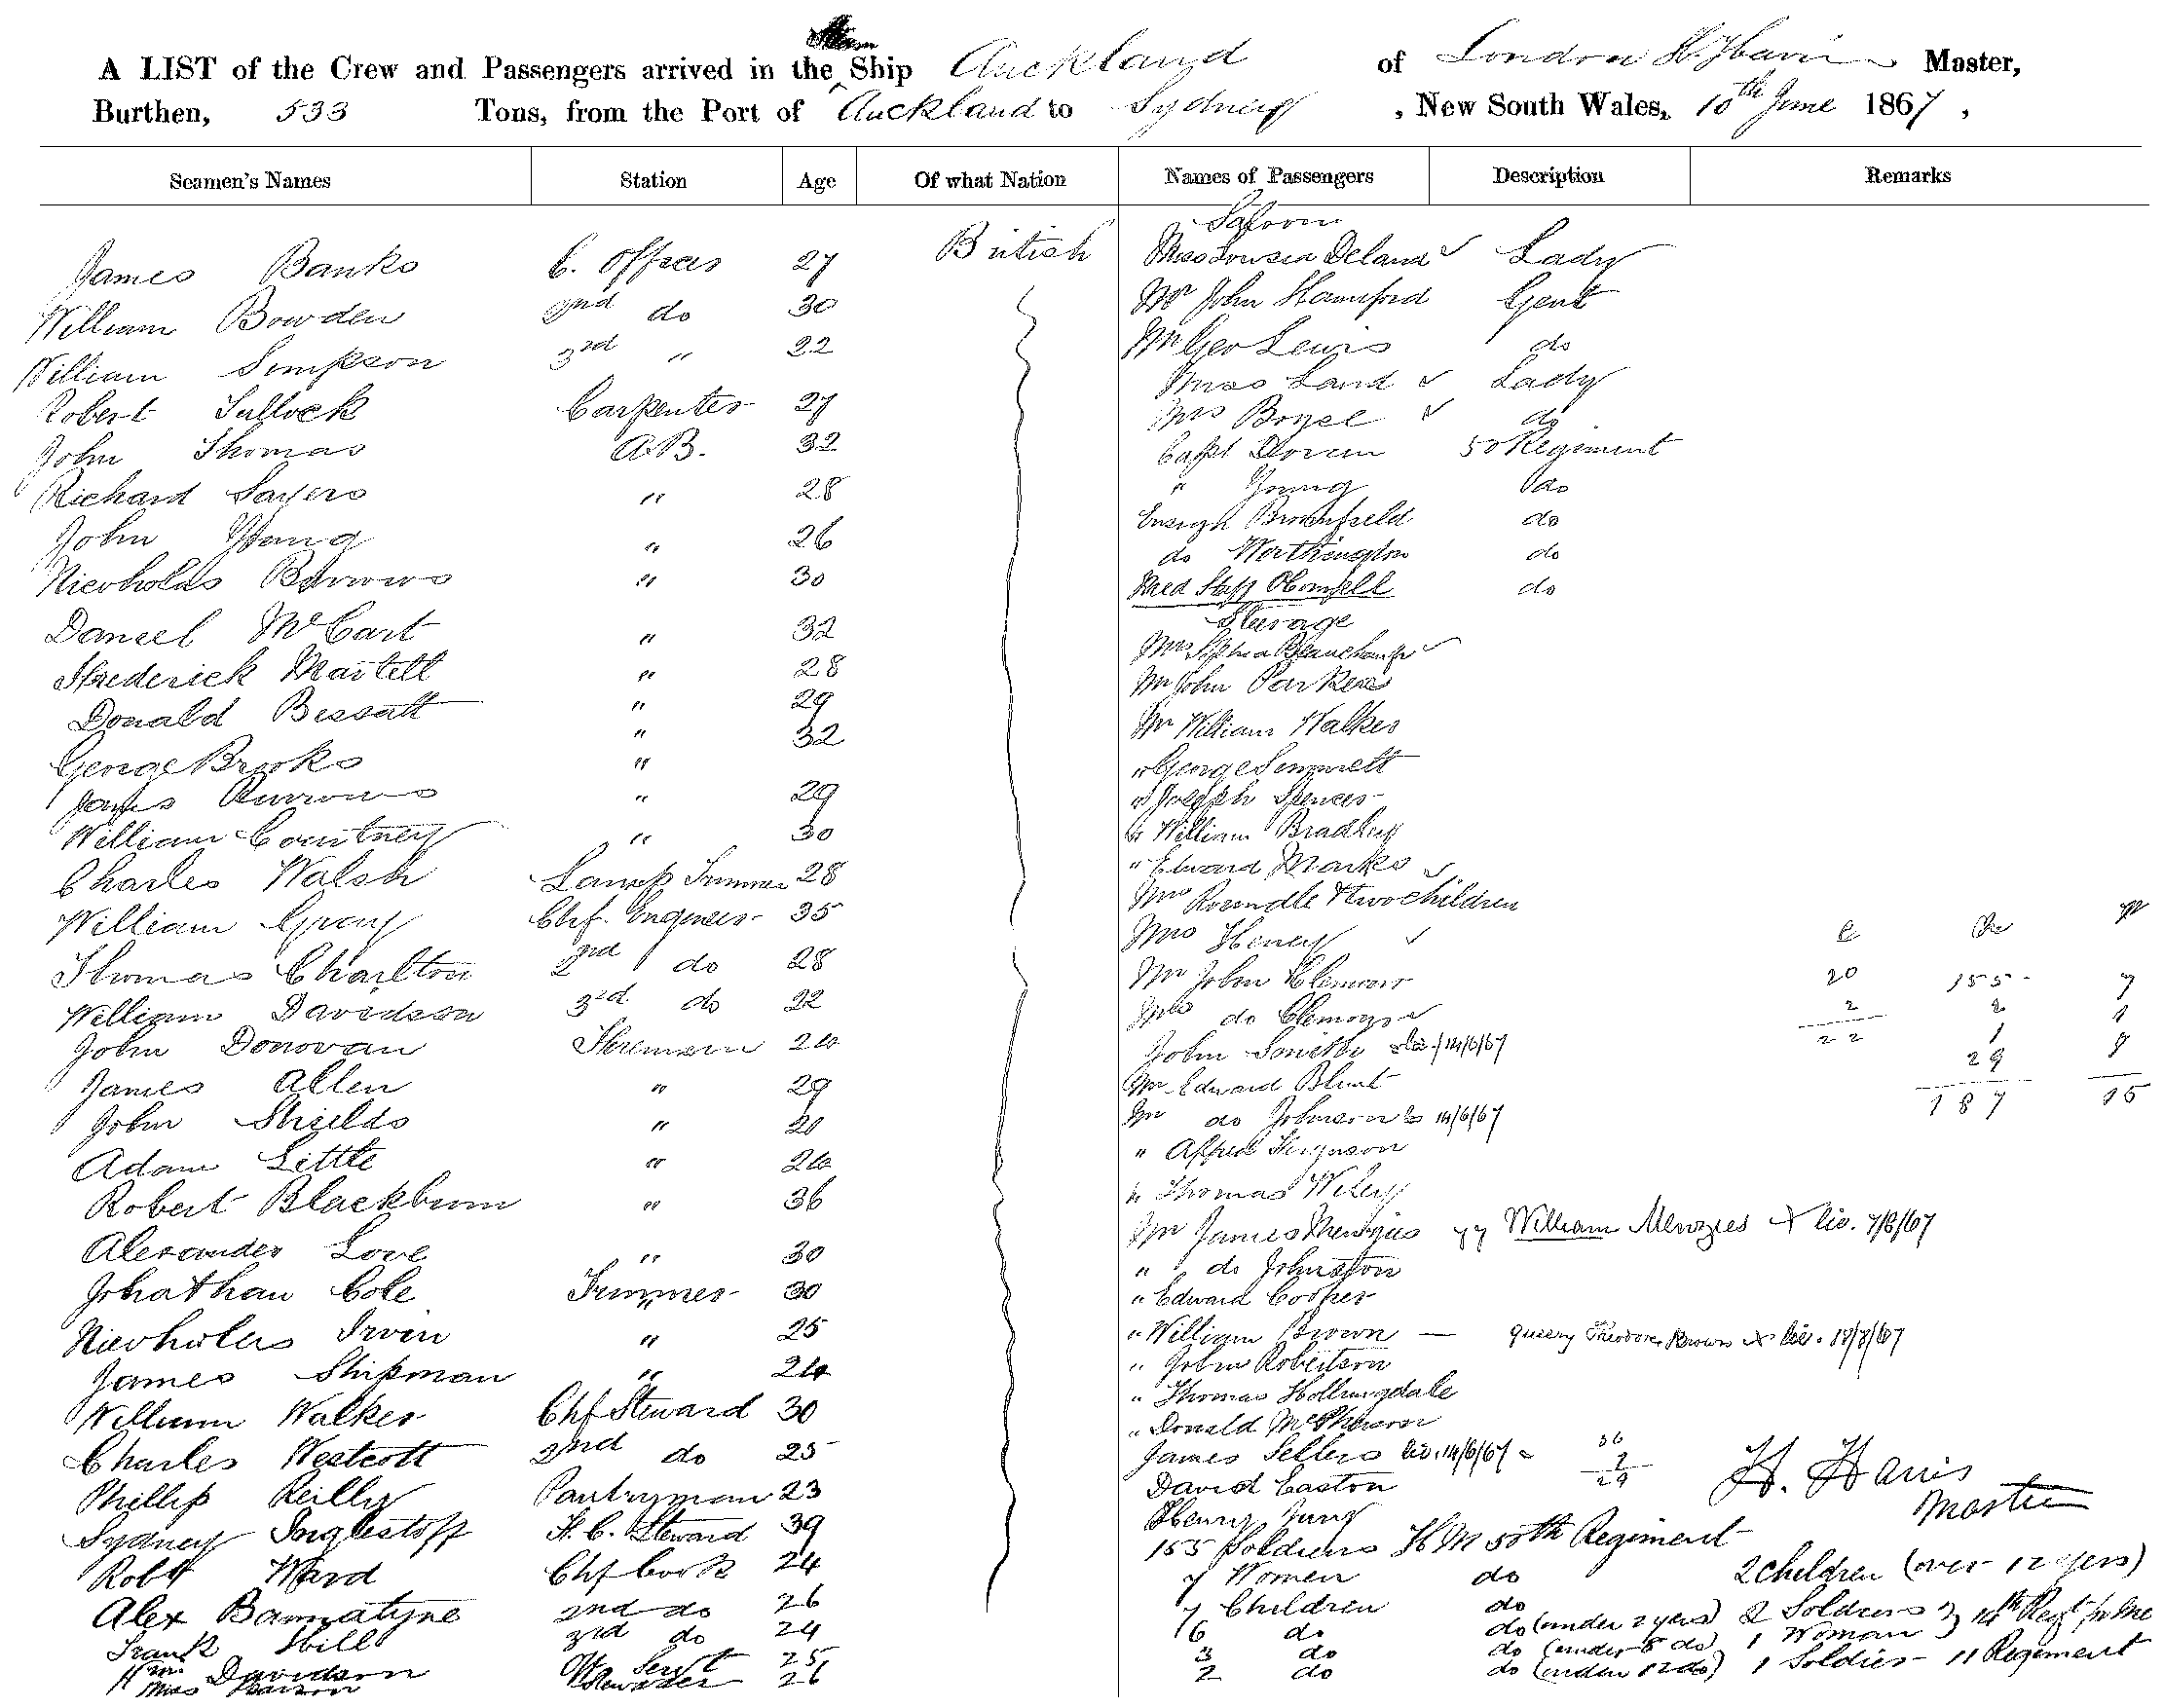 Steam
A LIST of the Crew and Passengers arrived in the Ship Auckland of London H. Harris Master,
Burthen, 533 Tons, from the Port of Auckland to Sydney, New South Wales, 10th June 1867,
Seamen's Names Station Age Of what Nation
James Banks C. Officer 27 British
William Bowden 2nd do 30
William Simpson 3rd " 22
Robert Tullock Carpenter 27
John Thomas A.B. 32
Richard Sayers " 28
John Young " 26
Nicholas Barrows " 30
Daniel McCart " 32
Frederick Martell " 28
Donald Bessatt " 29
George Brooks " 32
James " 29
William Courtney " 30
Charles Walsh Lamp Trimmer 28
William Gray Chf. Engineer 35
Thomas Charlton 2nd do 28
William Davidson 3rd do 22
John Donovan Fireman 24
James Allen " 29
John Shields " 20
Adam Little " 24
Robert Blackburn " 36
Alexander Love " 30
Johathan Cole Trimmer 30
Nicholas Irvin " 25
James Shipman " 24
William Walker Chf Steward 30
Charles Westcott 2nd do 25
Phillip Reilly Pantryman 23
Sydney Inglestoff F. C. Steward 39
Robt Ward Chf Cook 24
Alex Bannatyne 2nd do 26
Frank Hill 3rd do 24
Wm. Davidson Servt 25
Mrs Stewardess 26
Names of Passengers Description Remarks
Saloon
Miss Louisa Deland Lady
Mr John Hannford Gent
Mr Geo Lewis do
Miss Land Lady
Mrs Boyse do
Capt Doran 50 Regiment
" Young do
Ensign Brownfield do
do Worthington do
Med Staff do
Steerage
Mrs Sophia Beauchamp
Mr John Parker
Mr William Walker
" George Simmett
" Joseph Spencer
" William Bradley
" Edward Marks
Mrs Roundle & two children
Mrs Henry
Mr John Clemons 20 155 7
Mrs do Clemons 2 2 1
John liv. 14/6/67 22 1 9
29
Mr Edward Blunt
187
Mr do Johnson 14/6/67
" Alfred Ferguson
" Thomas Wiley
Mr James Menzies William Menzies X liv. 7/8/67
" do Johnston
" Edward Cooper
" William Brown — query Theodore Brown X liv. 19/8/67
" John Robertson
" Thomas Hollingdale
" Donald McPherson
James Sellers liv. 14/6/67
David Easton 29 H. Harris
Henry Jung Master
155 Soldiers H M 50th Regiment
7 Women do 2 Children (over 12 yers)
7 Children do
6 do do (under 2 years) 2 Soldiers 14th Regt
3 do do (under 8 do) 1 Woman
2 do do (under 12 do) 1 Soldier 11 Regiment